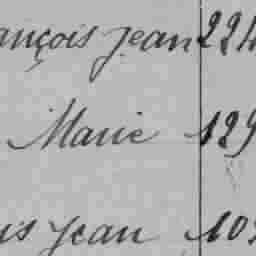 ançois Jean 224
Marie 129
us Jean 103